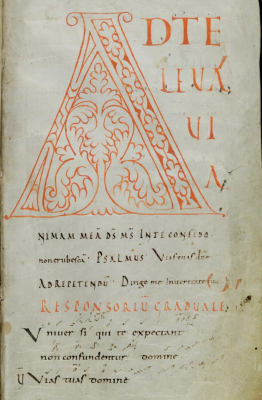 AD TE
LEUA
UI
A
NIMAM MEĀ DS̄ MS̄ INTE CONFIDO
non erubescā · PSALMUS Vias tuas dn̄e
AD REPETENDŪ · Dirige me in ueritate
RESPONSORIŪ GRADUALE
Vniuersi qui te expectant
non confundentur domine
V̄ Vias tuas domine